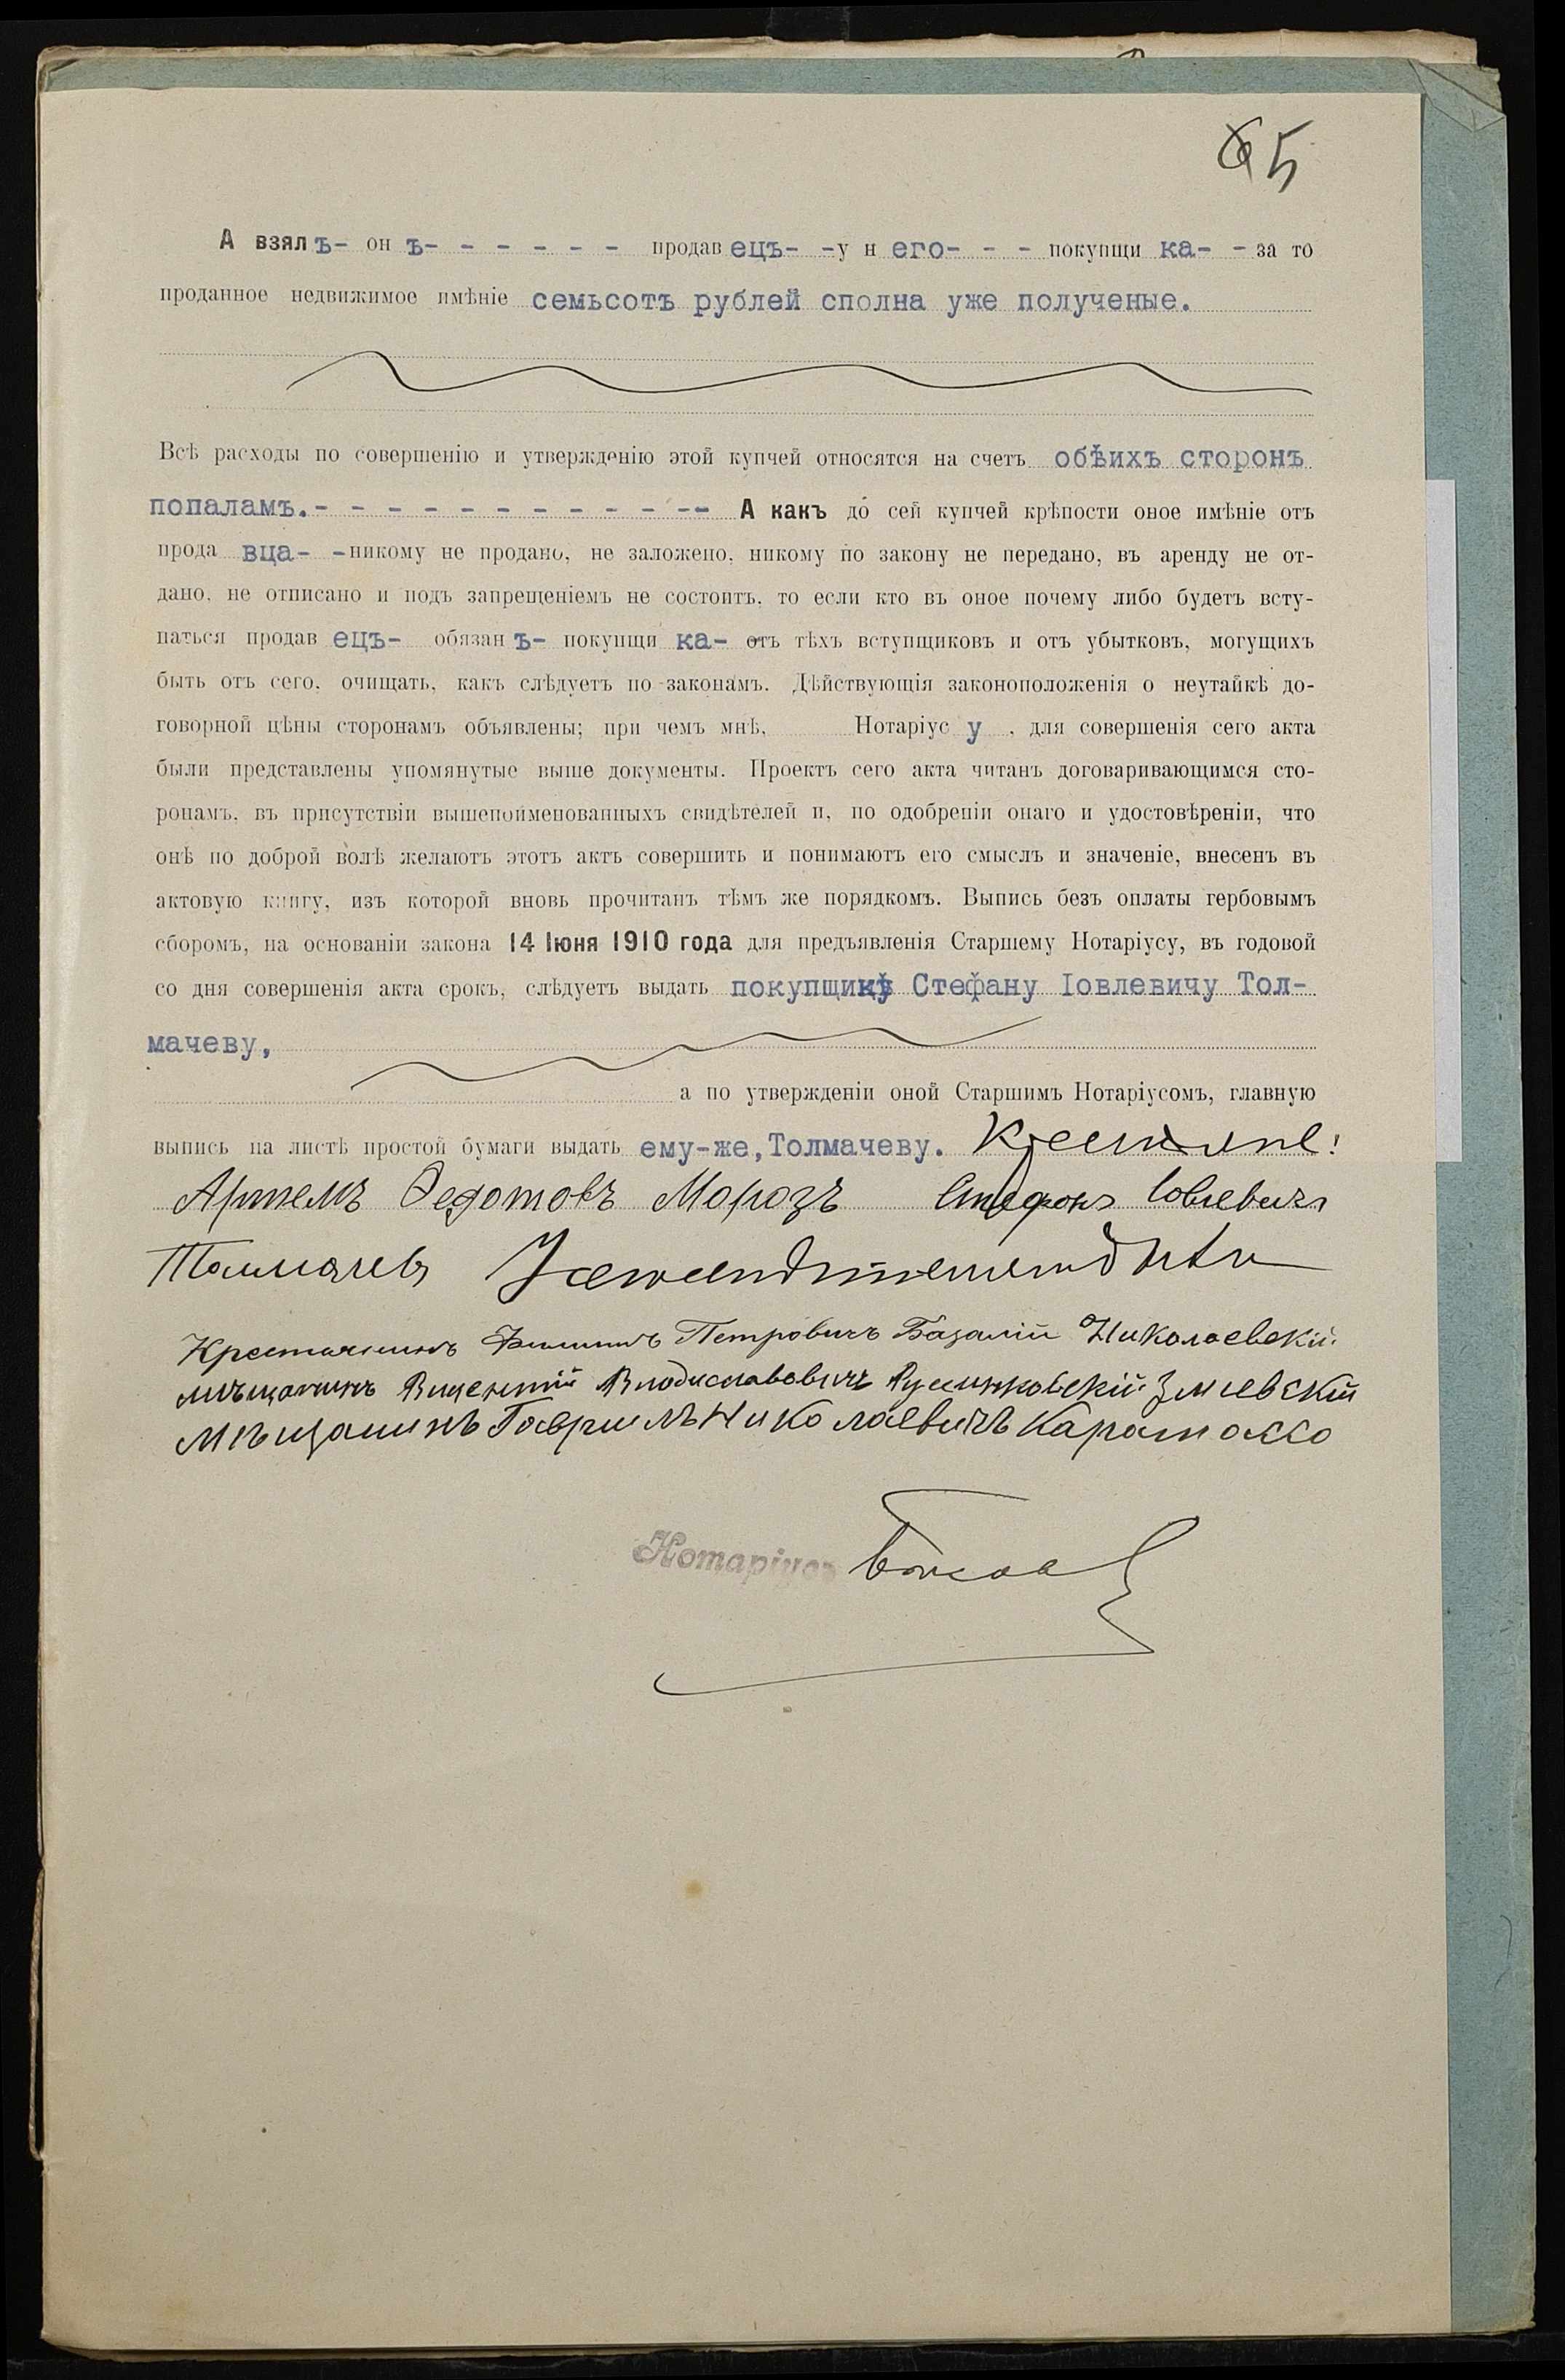 65
А взялъ- онъ- - - - - - продавецъ- -у него- - - покупщика- - за то
проданное недвижимое имѣніе семьсотъ рублей сполна уже полученые.
Всѣ расходы по совершенію и утвержденію этой купчей относятся на счетъ обѣихъ сторонъ
пополамъ.- - - - - - - - - - - -- А какъ до сей купчей крѣпости оное имѣніе отъ
продавца- -никому не продано, не заложено, никому по закону не передано, въ аренду не от-
дано, не отписано и подъ запрещеніемъ не состоитъ, то если кто въ оное почему либо будетъ всту-
паться продавецъ- обязанъ- покупщика- отъ тѣхъ вступщиковъ и отъ убытковъ, могущихъ
быть отъ сего, очищать, какъ слѣдуетъ по законамъ. Дѣйствующія законоположенія о неутайкѣ до-
говорной цѣны сторонамъ объявлены; при чемъ мнѣ, Нотаріусу, для совершенія сего акта
были представлены упомянутые выше документы. Проектъ сего акта читанъ договаривающимся сто-
ронамъ, въ присутствіи вышепоименованныхъ свидѣтелей и, по одобреніи онаго и удостовѣреніи, что
онѣ по доброй волѣ желаютъ этотъ актъ совершить и понимаютъ его смыслъ и значеніе, внесенъ въ
актовую книгу, изъ которой вновь прочитанъ тѣмъ же порядкомъ. Выпись безъ оплаты гербовымъ
сборомъ, на основаніи закона 14 Іюня 1910 года для предъявленія Старшему Нотаріусу, въ годовой
со дня совершенія акта срокъ, слѣдуетъ выдать Стефану Іовлевичу Тол-
мачеву,
а по утвержденіи оной Старшимъ Нотаріусомъ, главную
выпись на листѣ простой бумаги выдать ему-же, Толмачеву. Крестьяне:
Артемъ Федотовъ Морозъ Стефанъ Іовлевичъ
Толмачевъ
Крестьянинъ Филиппъ Петровичъ Базалій Николаевскій
мѣщанинъ Викентій Владиславовичъ Змиевскій
Мѣщанинъ Гавриилъ Николаевичъ
Нотаріусъ